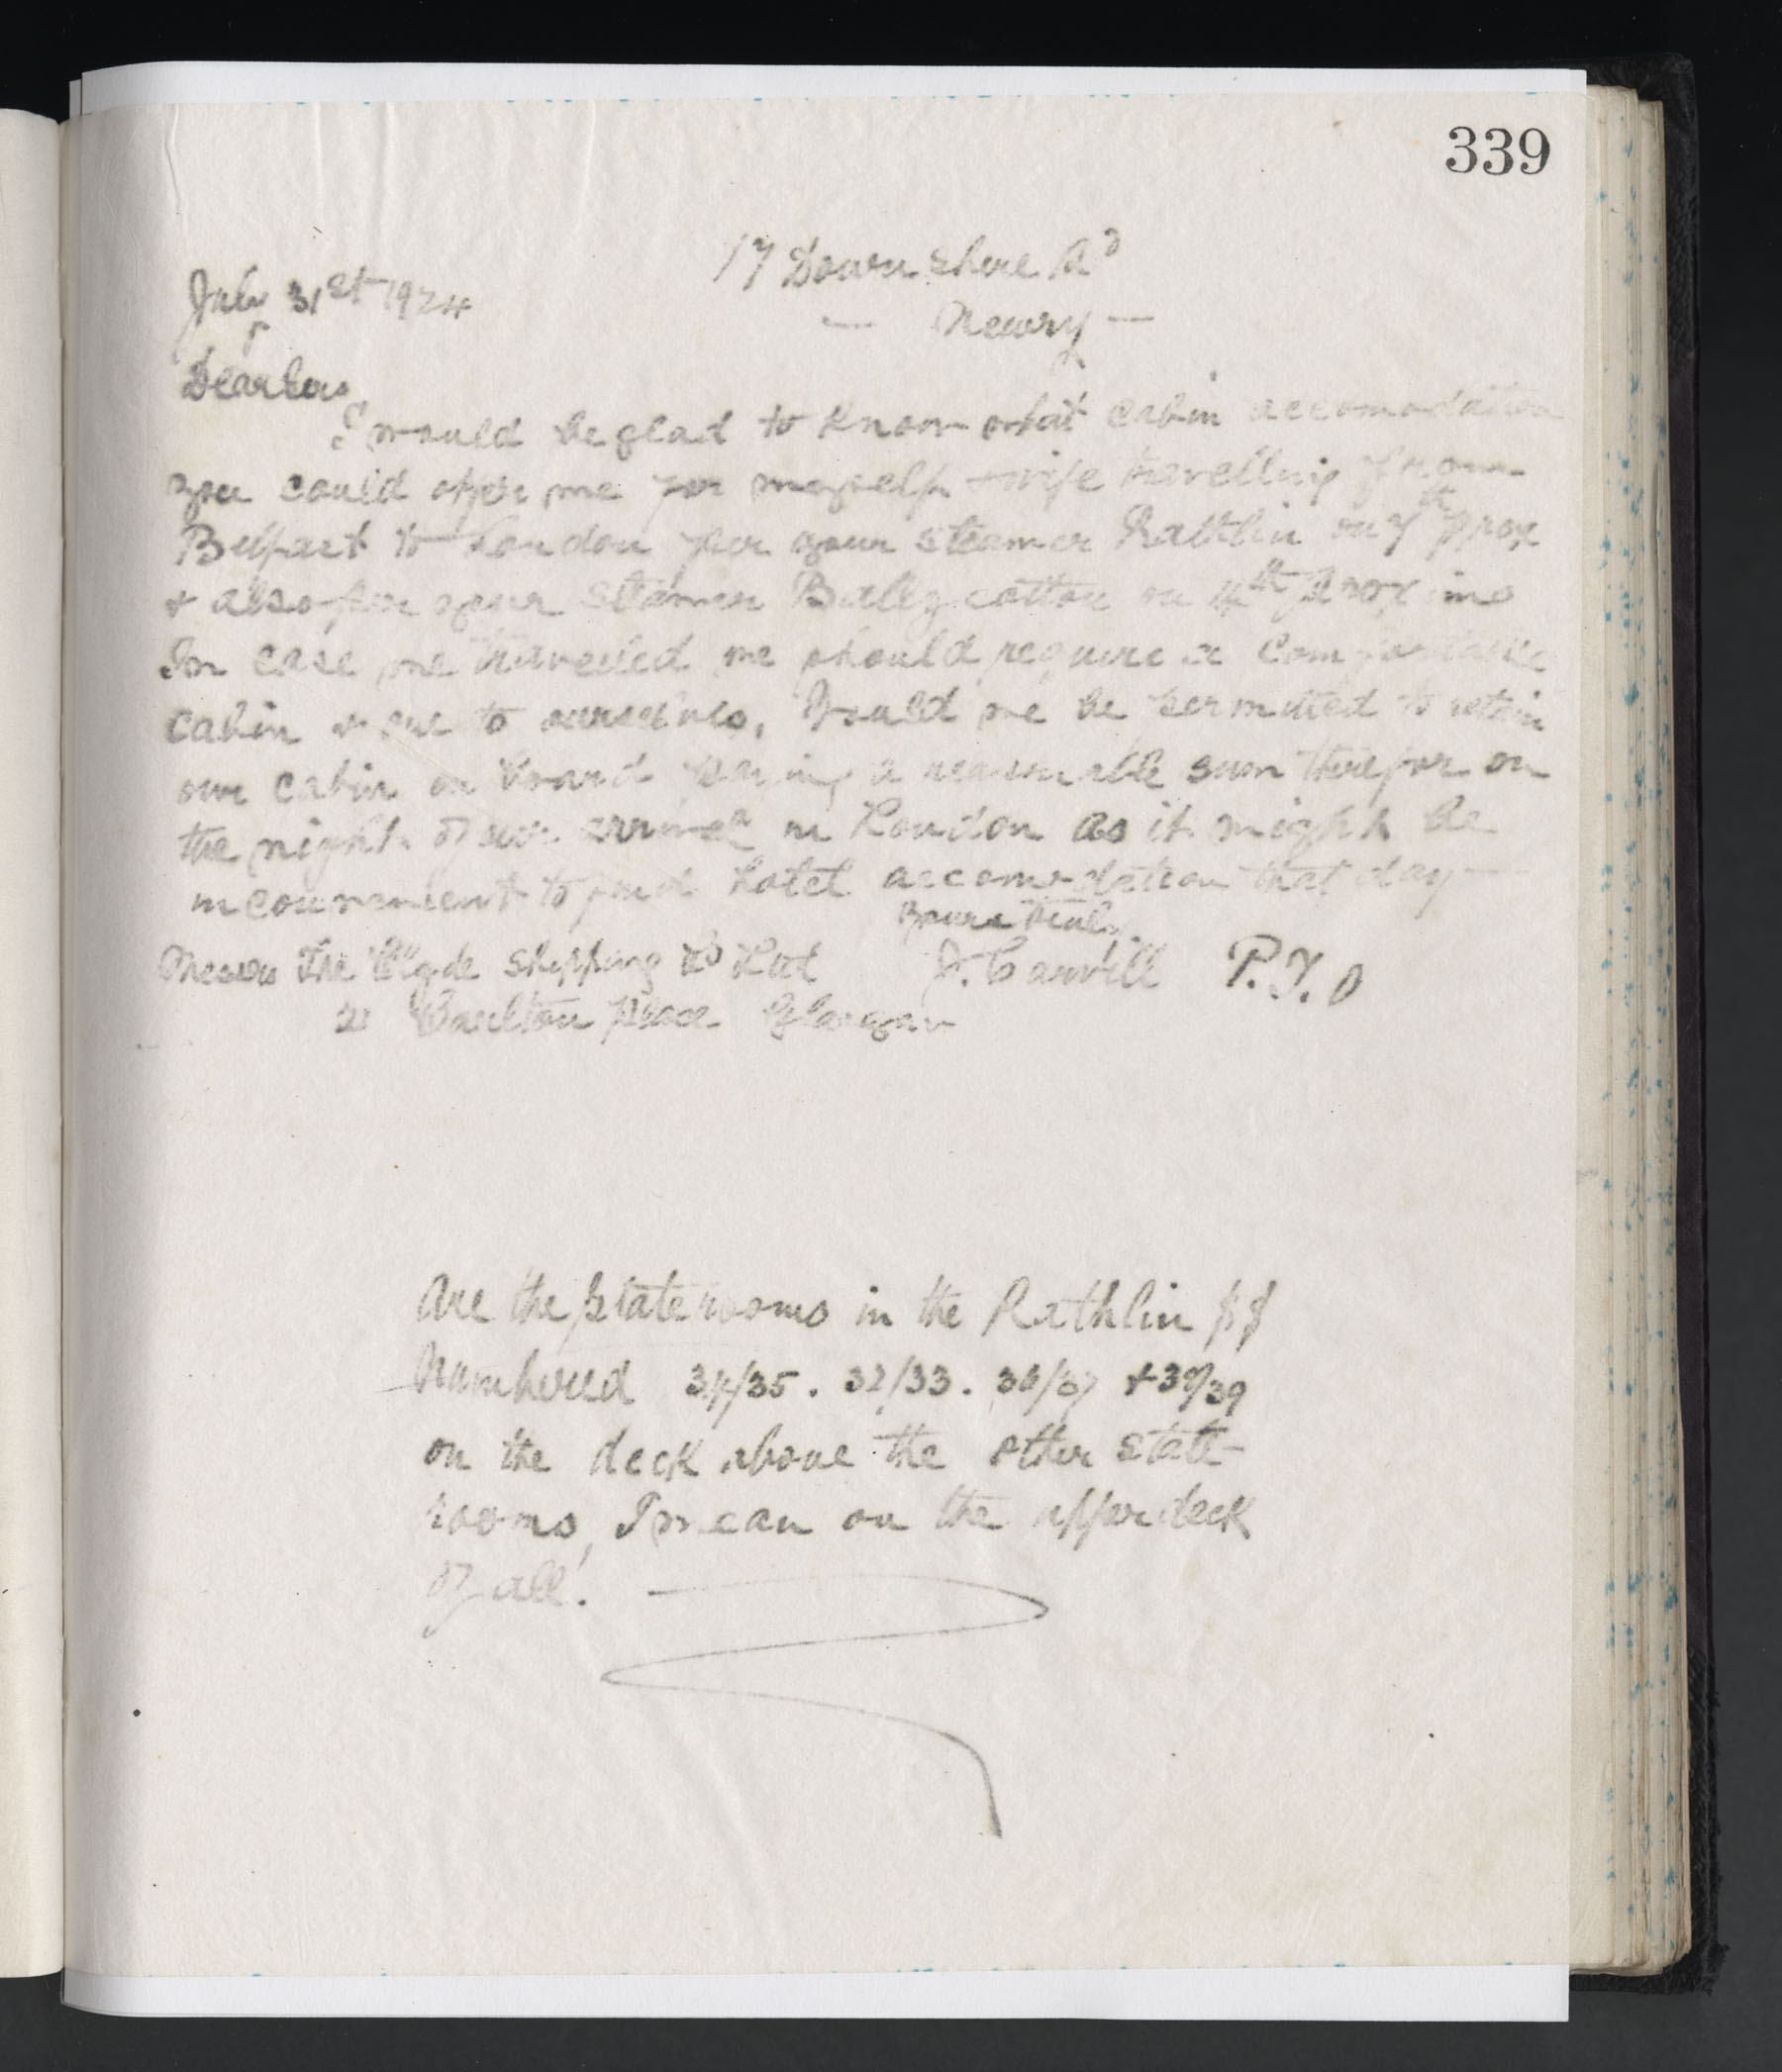 339
17 Downshire Rd
July 31st 1924
— Newry —
Dear Sirs
I would be glad to know what cabin accomodation
you could offer me for myself & wife travelling from
Belfast to London per your steamer Rathlin on 7th prox
& also per your steamer Ballycotton on 14th proximo
In case we travelled we should require a comfortable
cabin to ourselves, Would we be permitted to retain
our cabin on board paying a reasonable sum therefor on
the night of our arrival in London as it might be
inconvenient to find hotel accomodation that day —
Yours truly
Messrs The Clyde Shipping Co Ltd J. Carvill P.T.O
21 Carlton Place Glasgow
Are the state rooms in the Rathlin SS
Numbered 34/35. 32/33. 36/37 & 38/39
on the deck above the other state-
rooms, I mean on the upper deck
of all.